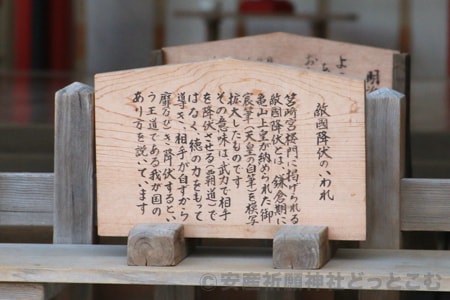 敵國降伏のいわれ
筥崎宮楼門に掲げられる
敵國降伏とは、鎌倉期に
亀山上皇が納められた御
宸筆(天皇の自筆)を模写
拡大したものです
その意味は武力で相手
を降伏させる(覇道)で
はなく、徳の力をもって
導き、相手が自すから
靡びき降伏するとい
う王道である我が国の
あり方を説いています
©安産祈願神社どっとこむ